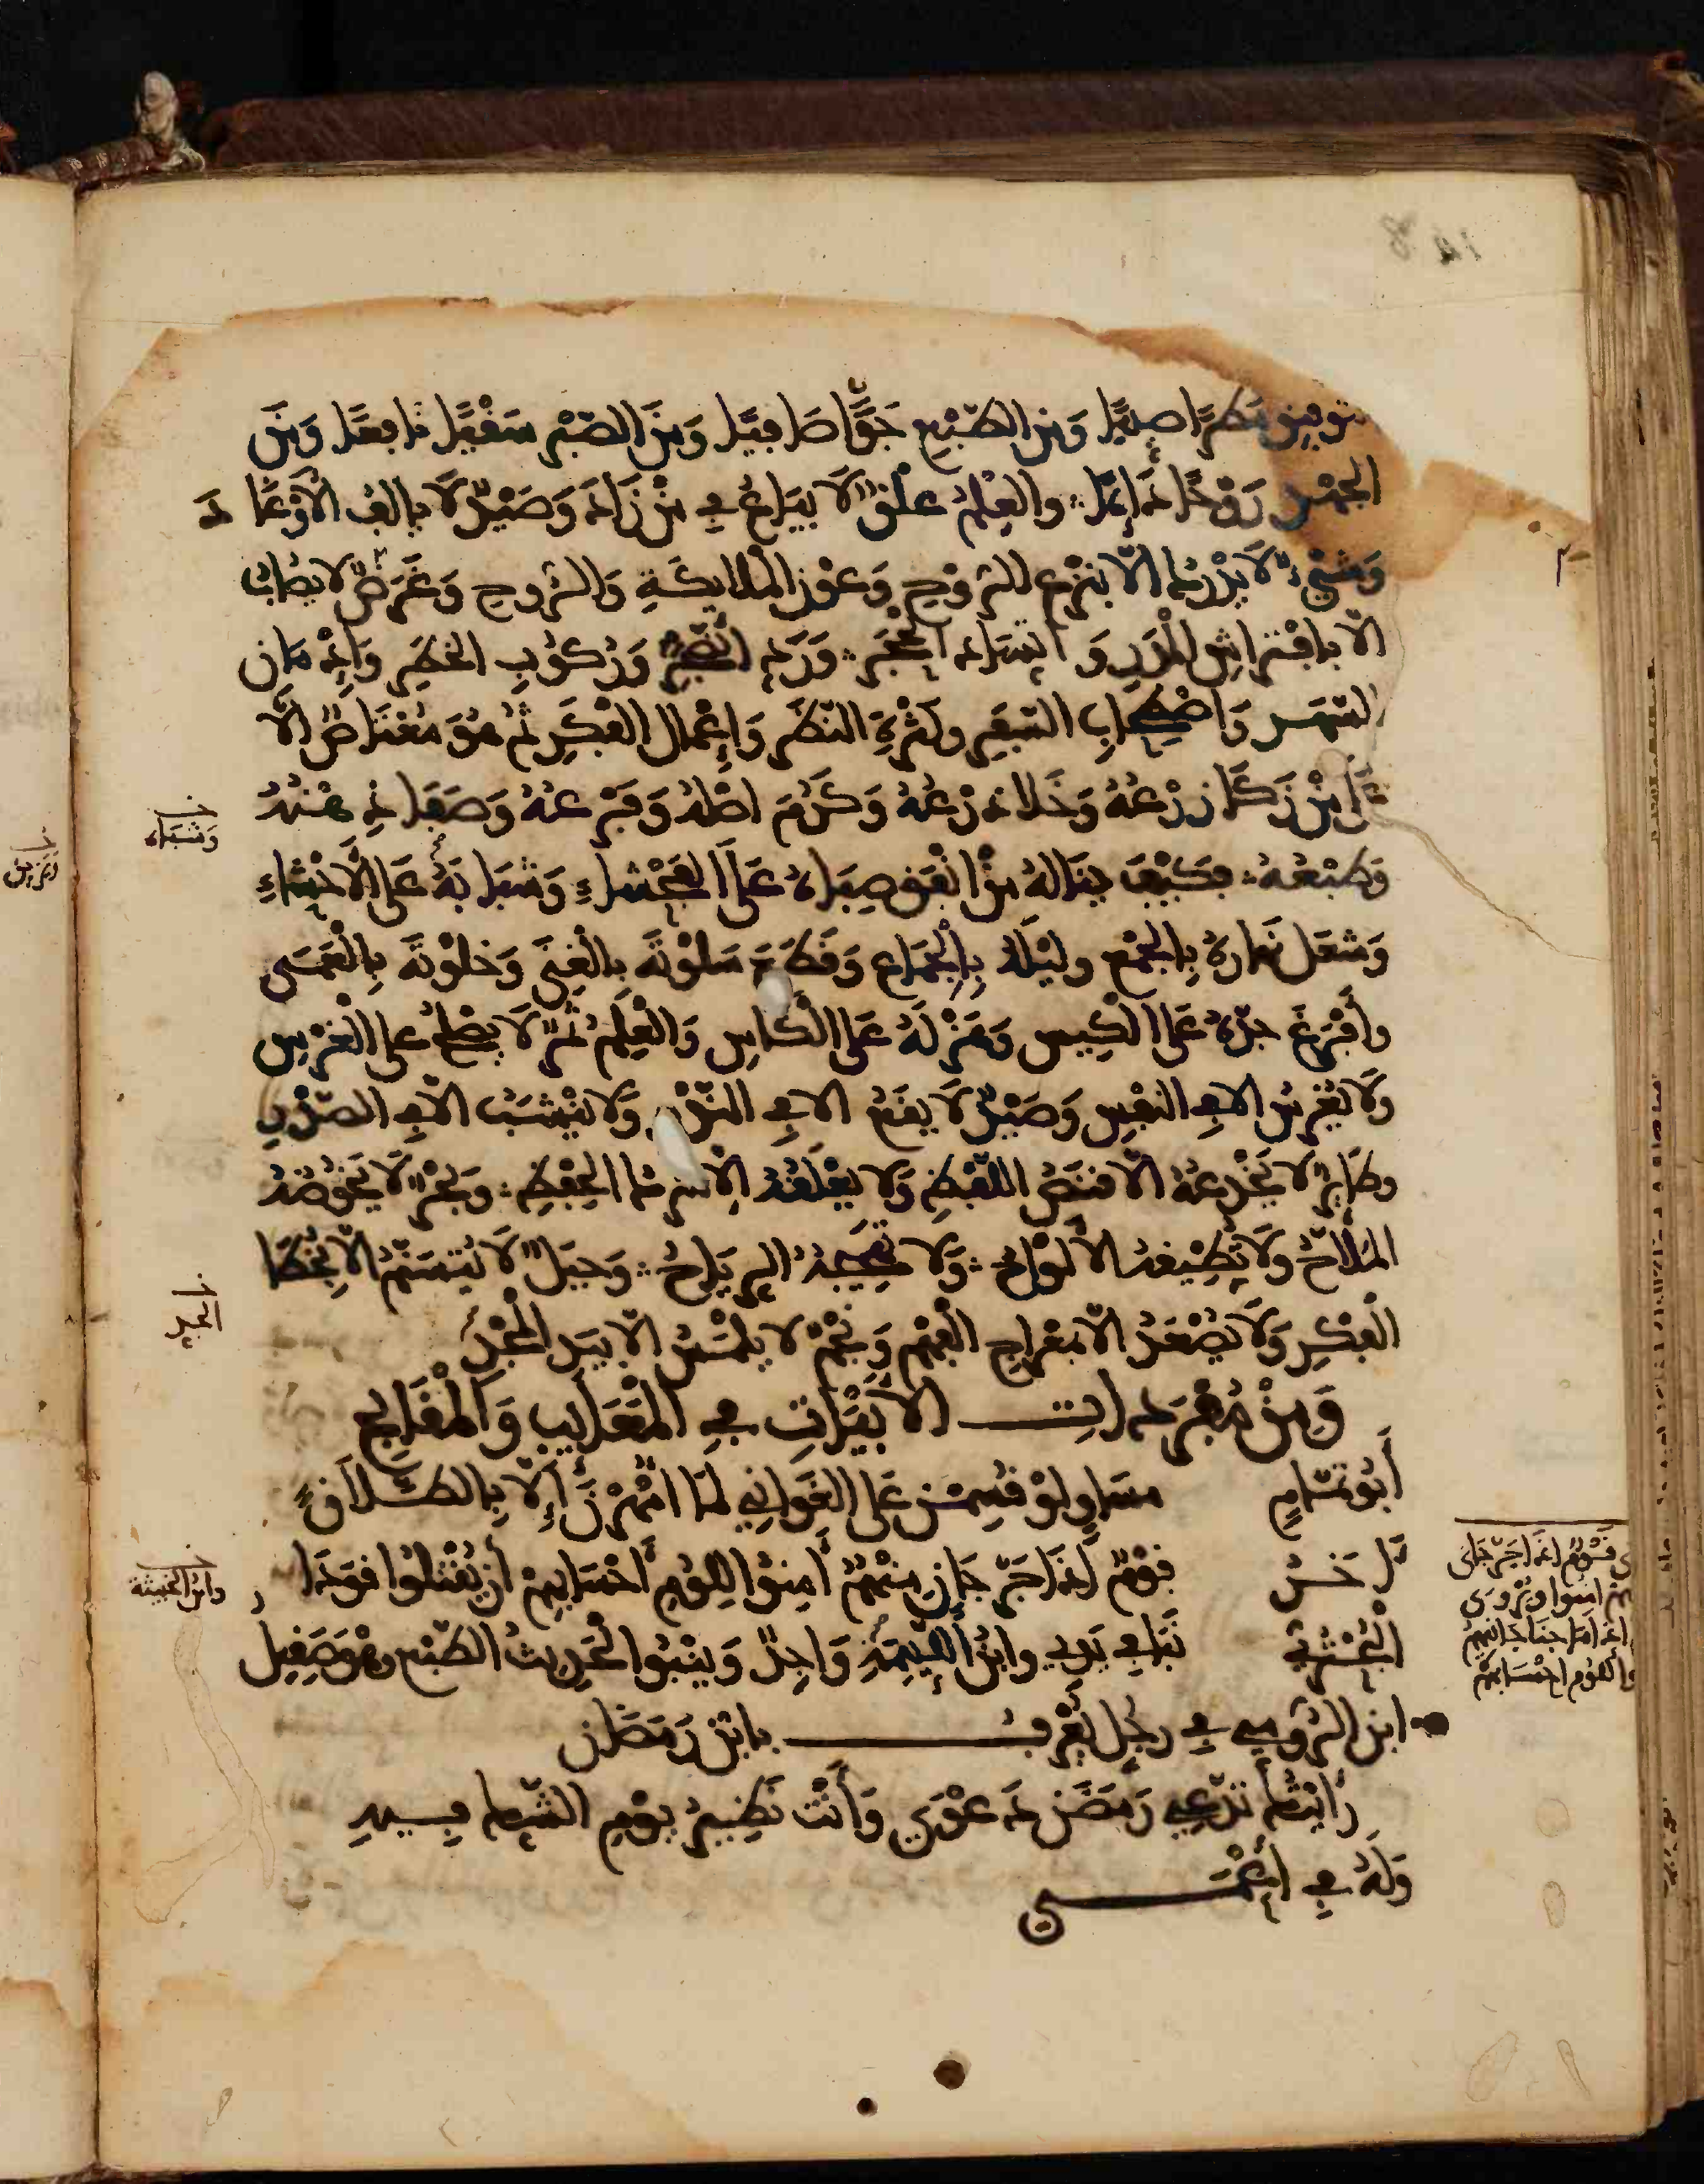 مطرًا صيّبًا ومن الطبع جوًّا صافيًا ومن الصبر سقيًا نافعًا ومن
الجهد روحًا دائمًا والعلم علق لا يباع في من زاد وصيد لا يالف الاوغاد
وشيء لا يدرك الّا بنزع الروح وعون الملائكة والروح وغرض لا يصاب
الّا بافتراش المدر واتساد الحجر وردّ الضجر وركوب الخطر وادمان
السهر واصطحاب السفر وكثرة النظر وإعمال الفكر ثم هو معتاص الّا
على من زكا زرعه وخلا ذرعه وكرم اصله وفرعه وصفا ذهنه
وطبعه فكيف يناله من انفق صباه على الفحشاء وشبابه على الأحشاء
وشغل نهاره بالجمع وليله بالجماع وقطع سلوته بالغنى وخلوته بالغنا
وأفرغ جدّه على الكيس وهزله على الكاس والعلم ثمر لا يصلح الا للغرس
ولا يغرس الا في النفس وصيد لا يقع الا في الندر ولا ينشب الا في الصدر
وطاير لا يخدعه الّا قنص اللفظ ولا يعلقه الا شرك الحفظ وبحر لا يخوضه
الملّاح ولا تطيقه الألواح ولا تهيجه الرياح وجبل لا يتسنم الّا بخطا
الفكر ولا يصعد الّا بمعراج الفهم ونجم لا يلمس الّا بيد المجد
ومن مفردات الأبيات في المعايب والمقابح
أبو تمام مساوٍ لو قسمن على الغواني لما امهرن إلّا بالطلاق
آخر قوم إذا جرّ جاني منهم أمنوا للوم أحسابهم أن يقتلوا قودا
البحتري نبا في يدي وابن اللئيمة واجد وينبو الحديث الطبع وهو صقيل
ابن الرومي في رجل يعرف بابن رمضان
رأيتك تدّعي رمضان دعوى وأنت نظير يوم الشك فيه
وله في أعمى
خ وشباه
خ الحبر
خ وابن الخبيثة
قوم اذا جرّ جانى
منهم امنوا ويروى
اذا ما جنا جانيهم
للوم احسابهم